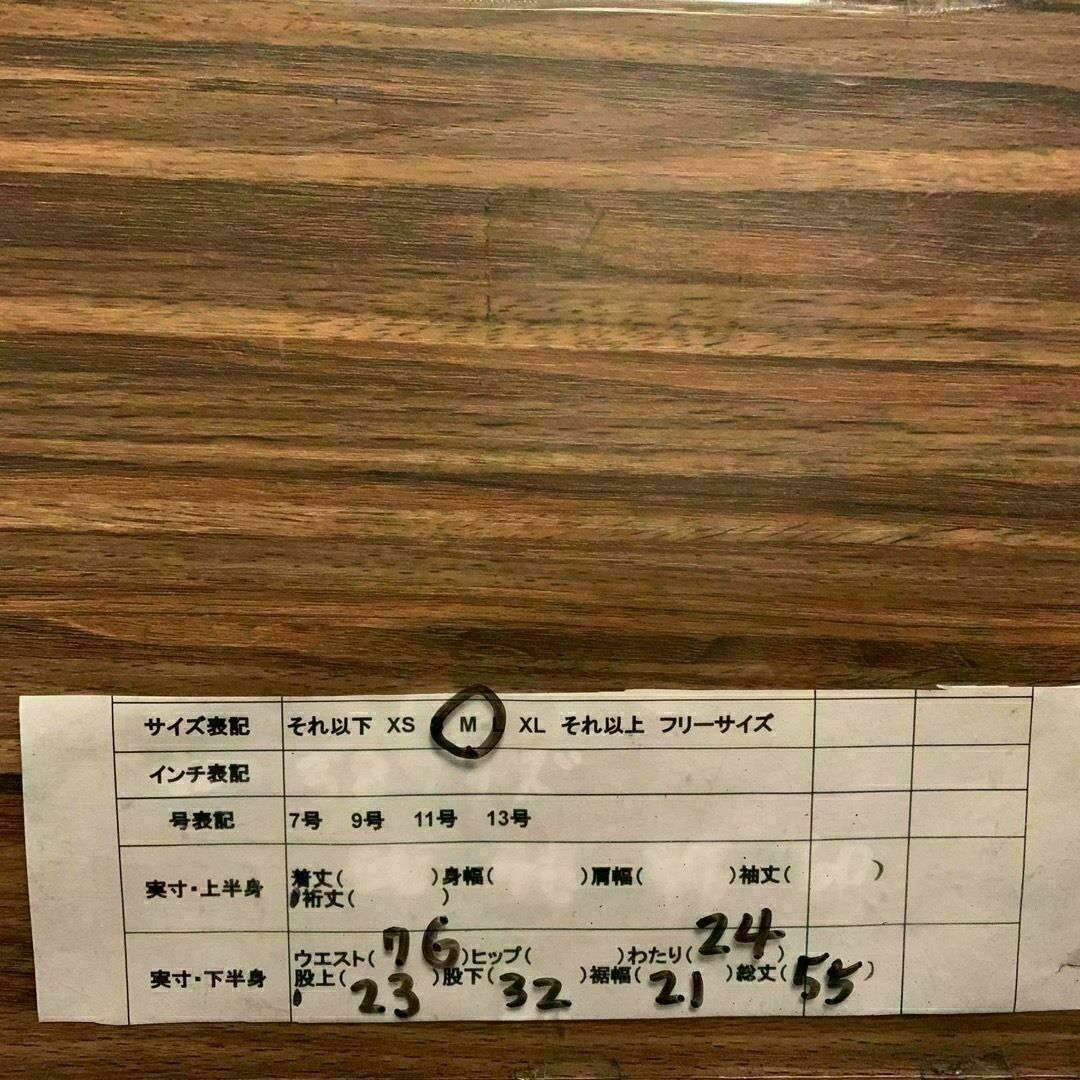 サイズ表記 それ以下 XS M L XL それ以上 フリーサイズ
インチ表記
号表記 7号 9号 11号 13号
実寸・上半身 着丈( )身幅( )肩幅( )袖丈( )
裄丈( )
実寸・下半身 ウエスト(76)ヒップ( )わたり(24)
股上(23)股下(32)裾幅(21)総丈(55)